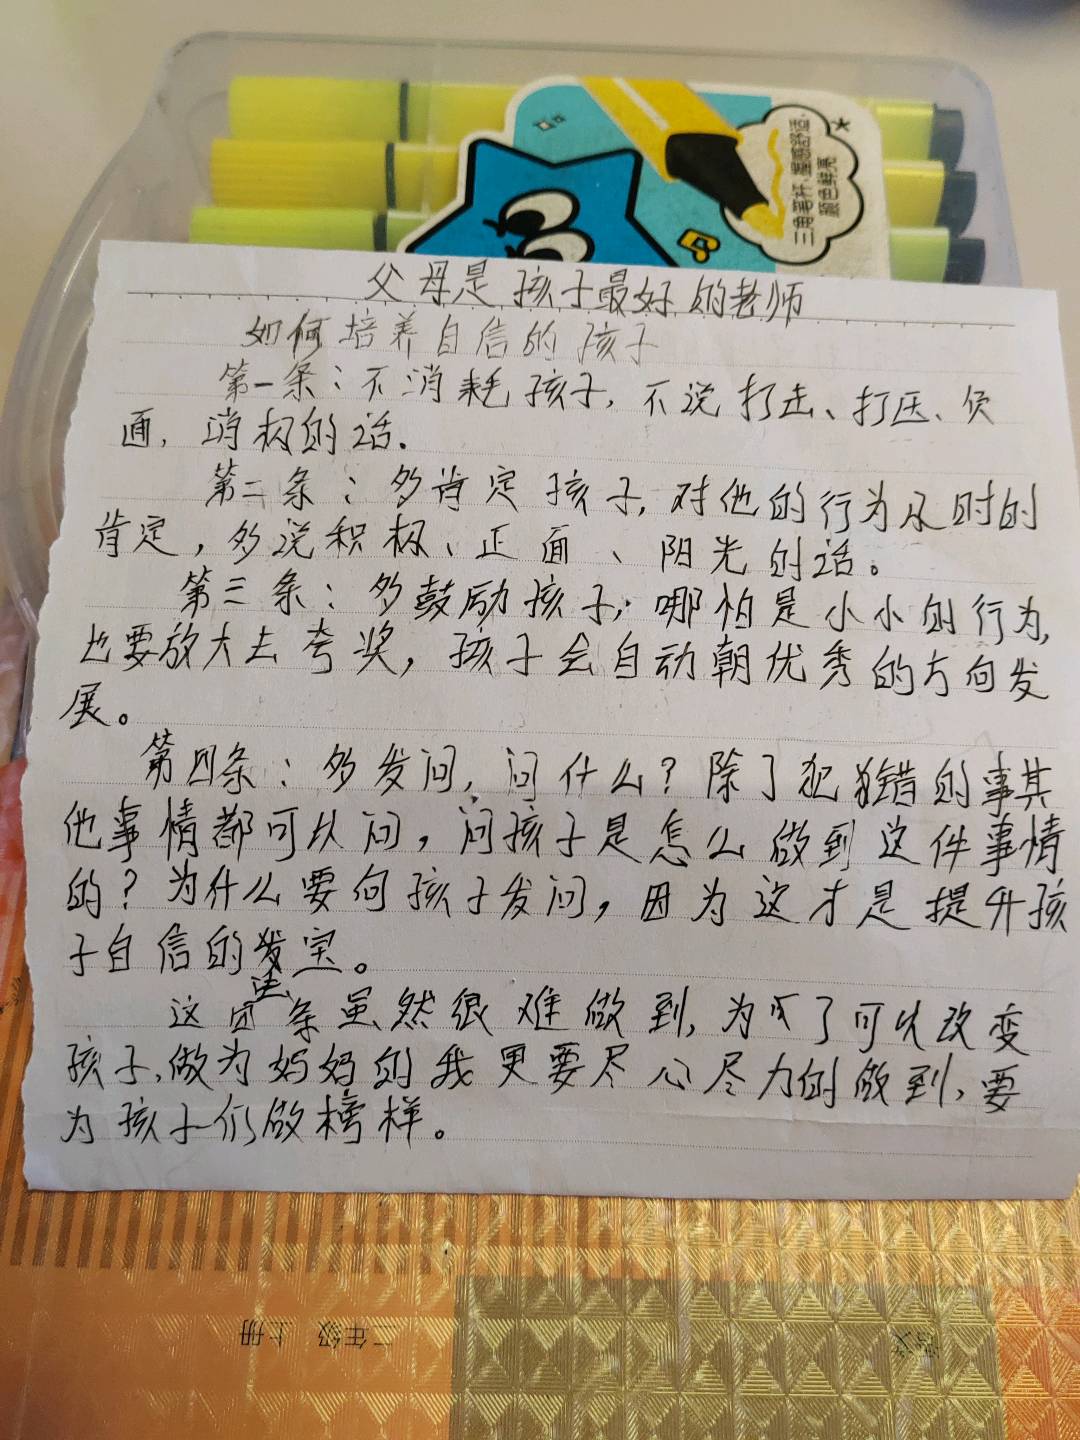 三角笔杆、握感舒适、
颜色鲜亮
父母是孩子最好的老师
如何培养自信的孩子
第一条：不消耗孩子,不说打击、打压、负
面,消极的话.
第二条：多肯定孩子,对他的行为及时的
肯定,多说积极、正面、阳光的话。
第三条：多鼓励孩子;哪怕是小小的行为,
也要放大去夸奖,孩子会自动朝优秀的方向发
展。
第四条：多发问,问什么?除了犯错的事其
他事情都可以问,问孩子是怎么做到这件事情
的?为什么要向孩子发问,因为这才是提升孩
子自信的法宝。
这四条虽然很难做到,为了可以改变
孩子,做为妈妈的我更要尽心尽力的做到,要
为孩子们做榜样。
二年级 上册